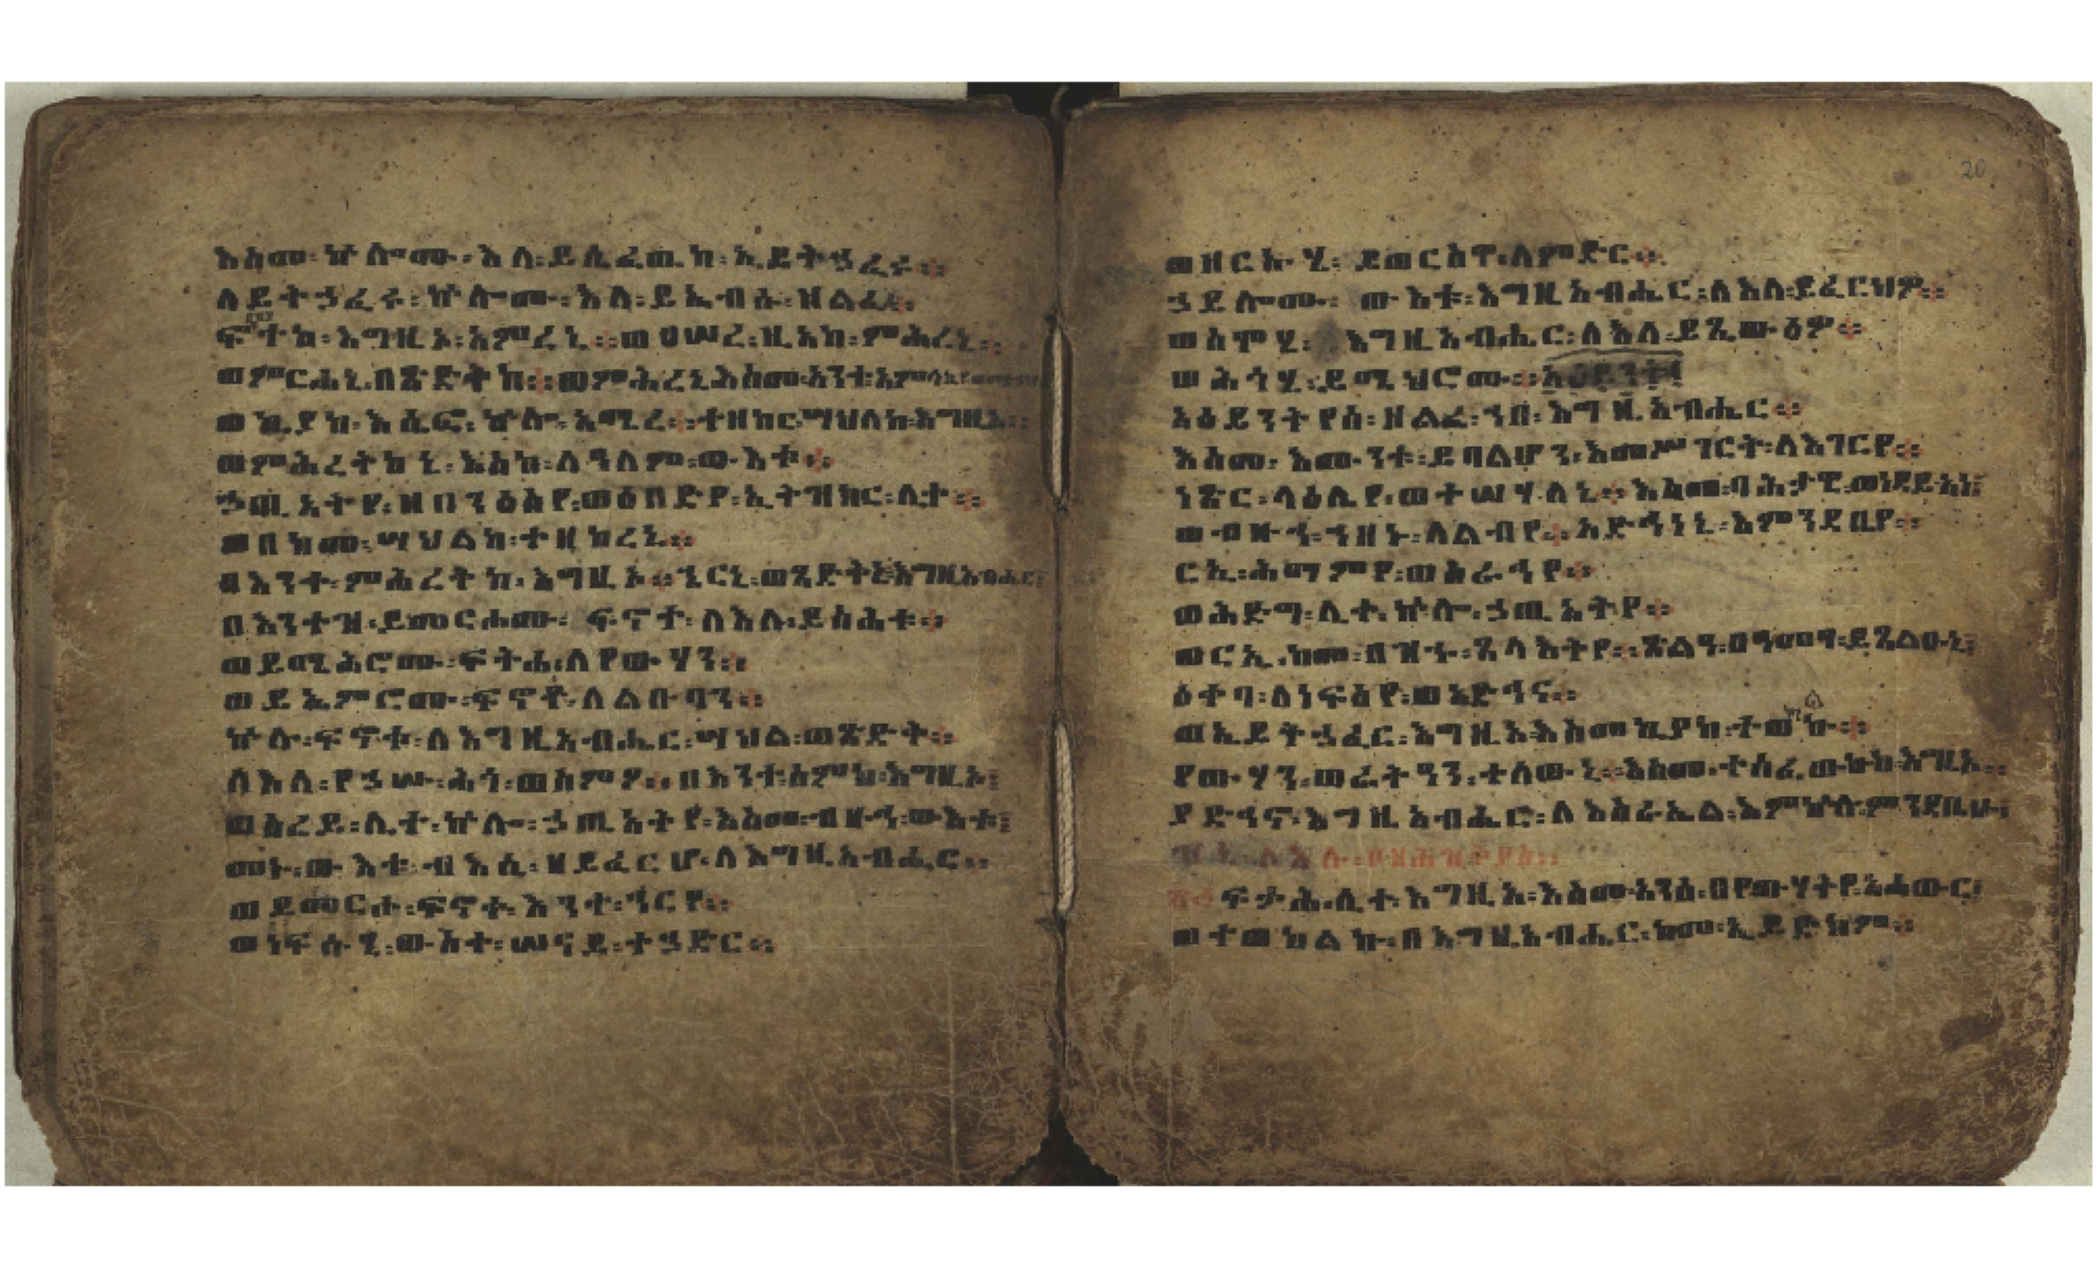 እስመ፡ ኵሎሙ፡ እለ፡ ይሴፈዉከ፡ ኢይትኃፈሩ።
ለይትኃፈሩ፡ ኵሎሙ፡ እለ፡ ይኤብሱ፡ ዘልፈ።
ፍኖተከ፡ እግዚኦ፡ አምረኒ። ወዐሠረ፡ ዚአከ፡ ምሕረኒ።
ወምርሐኒ፡ በጽድቅከ። ወምሕረኒ፡ እስመ፡ አንተ፡ አምላኪየ፡ ወመድኀንየ
ወኪያከ፡ እሴፎ፡ ኵሎ፡ አሚረ። ተዘከር፡ ሣህለከ፡ እግዚኦ።
ወምሕረትከኒ፡ እስከ፡ ለዓለም፡ ውእቱ።
ኃጢአትየ፡ ዘበንዕስየ፡ ወዕበድየ፡ ኢትዝክር፡ ሊተ።
ወበከመ፡ ሣህልከ፡ ተዘከረኒ።
በእንተ፡ ምሕረትከ፡ እግዚኦ። ኄርኒ፡ ወጻድቅ፡ እግዚአብሔር፡
በእንተዝ፡ ይመርሖሙ፡ ፍኖተ፡ ለእለ፡ ይስሕቱ።
ወይሜህሮሙ፡ ፍትሐ፡ ለየውሃን።
ወይኤምሮሙ፡ ፍኖቶ፡ ለልቡባን።
ኵሉ፡ ፍኖቱ፡ ለእግዚአብሔር፡ ሣህል፡ ወጽድቅ።
ለእለ፡ የኃሡ፡ ሕጎ፡ ወስምዖ። በእንተ፡ ስምከ፡ እግዚኦ፡
ወስረይ፡ ሊተ፡ ኵሎ፡ ኃጢአትየ፡ እስመ፡ ብዙኅ፡ ውእቱ፡
መኑ፡ ውእቱ፡ ብእሲ፡ ዘይፈርሆ፡ ለእግዚአብሔር።
ወይመርሖ፡ ፍኖተ፡ እንተ፡ ኀርየ።
ወነፍሱኒ፡ ውስተ፡ ሠናይ፡ ተኃድር።
ወዘርኡሂ፡ ይወርስዋ፡ ለምድር።
ኃይሎሙ፡ ውእቱ፡ እግዚአብሔር፡ ለእለ፡ ይፈርህዎ።
ወስሞሂ፡ እግዚአብሔር፡ ለእለ፡ ይጼውዕዎ።
ወሕጎሂ፡ ይሜህሮሙ። አዕይንት
አዕይንትየሰ፡ ዘልፈ፡ ኀበ፡ እግዚአብሔር።
እስመ፡ እሙንቱ፡ ይባልሆን፡ እመሥገርት፡ ለእገርየ።
ነጽር፡ ላዕሌየ፡ ወተሣሃለኒ። እስመ፡ ባሕታዊ፡ ወነዳይ፡ አነ፡
ወብዙኅ፡ ኀዘኑ፡ ለልብየ። አድኅነኒ፡ እምንዳቤየ።
ርኢ፡ ሕማምየ፡ ወስራኅየ።
ወሕድግ፡ ሊተ፡ ኵሎ፡ ኃጢአትየ።
ወርኢ፡ ከመ፡ በዝኁ፡ ጸላእትየ። ጽልዓ፡ በዓመፃ፡ ይጸልዑኒ፡
ዕቀባ፡ ለነፍስየ፡ ወአድኅና።
ወኢይትኃፈር፡ እግዚኦ፡ እስመ፡ ኪያከ፡ ተወከልኩ።
የውሃን፡ ወራትዓን፡ ተለዉኒ። እስመ፡ ተሰፈውኩከ፡ እግዚኦ።
ያድኅኖ፡ እግዚአብሔር፡ ለእስራኤል፡ እምኵሉ፡ ምንዳቤሁ፡
ፍታሕ፡ ሊተ፡ እግዚኦ፡ እስመ፡ አንሰ፡ በየውሃትየ፡ አሐውር፡
ወተወከልኩ፡ በእግዚአብሔር፡ ከመ፡ ኢይድክም።
20